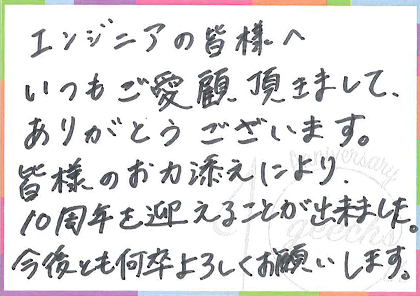 エンジニアの皆様へ
いつもご愛顧頂きまして、
ありがとうございます。
皆様のお力添えにより、
10周年を迎えることが出来ました。
今後とも何卒よろしくお願いします。
anniversary
geechs